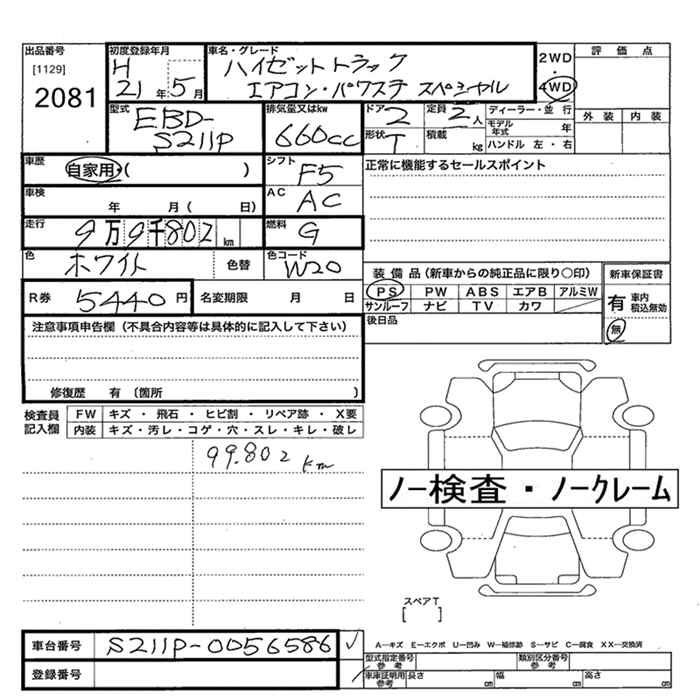 出品番号
[1129]
2081
初度登録年月
H
21年5月
車名・グレード
ハイゼットトラック
エアコン・パワステ スペシャル
2WD
・
4WD
評価点
外装 内装
型式
EBD-
S211P
排気量又はkw
660cc
ドア 2
定員 2人
形状 T
積載 kg
ディーラー・並行
モデル年式 年
ハンドル 左・右
車歴
自家用・( )
シフト F5
正常に機能するセールスポイント
車検
年 月( 日)
AC AC
走行
9万9千802km
燃料 G
色 ホワイト 色替
色コード W20
R券 5440円
名変期限 月 日
装備品(新車からの純正品に限り○印)
PS PW ABS エアB アルミW
サンルーフ ナビ TV カワ
後日品
新車保証書
有 車内積込無効
無
注意事項申告欄(不具合内容等は具体的に記入して下さい)
修復歴 有(箇所 )
検査員記入欄
FW キズ・飛石・ヒビ割・リペア跡・X要
内装 キズ・汚レ・コゲ・穴・スレ・キレ・破レ
99.802 km
ノー検査・ノークレーム
スペアT
[ ]
車台番号 S211P-0056586
登録番号
A―キズ E―エクボ U―凹み W―補修跡 S―サビ C―腐食 XX―交換済
型式指定番号参考
類別区分番号参考
車庫証明用参考 長さ cm 幅 cm 高さ cm